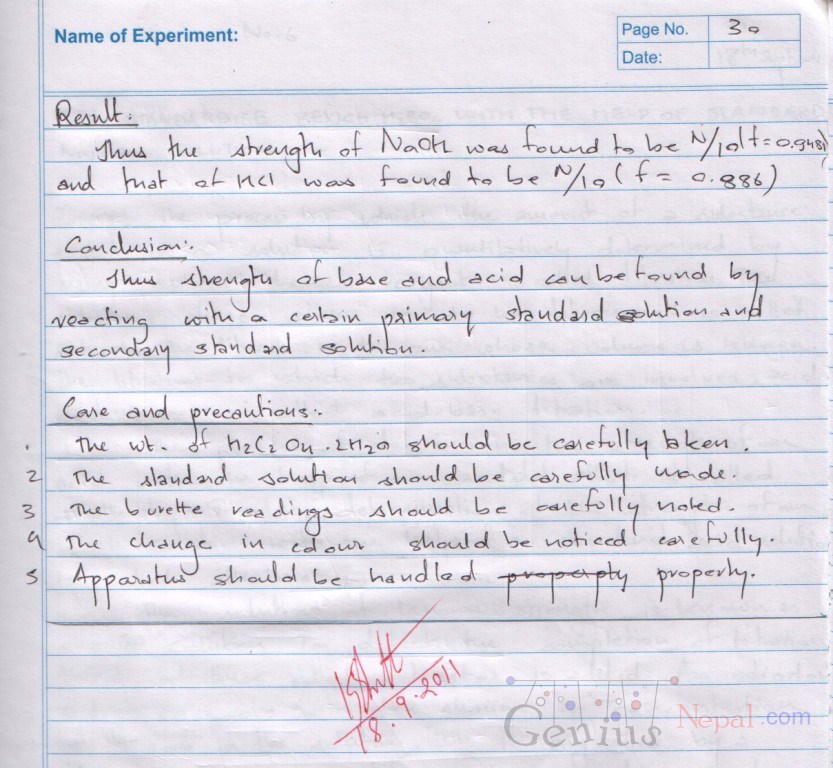 Name of Experiment:
Page No. 30
Date:
Result:
Thus the strength of NaOH was found to be N/10 (f=0.9481)
and that of HCl was found to be N/10 (f= 0.886)
Conclusion:
Thus strength of base and acid can be found by
reacting with a certain primary standard solution and
secondary standard solution.
Care and precautions:
. The wt. of H2C2O4.2H2O should be carefully taken.
2 The standard solution should be carefully made.
3 The burette readings should be carefully noted.
4 The change in colour should be noticed carefully.
5 Apparatus should be handled properly.
18.9.2011
Genius Nepal.com